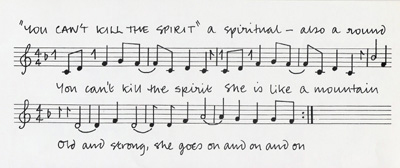 "YOU CAN'T KILL THE SPIRIT" a spiritual - also a round
You can't kill the spirit she is like a mountain
Old and strong, she goes on and on and on